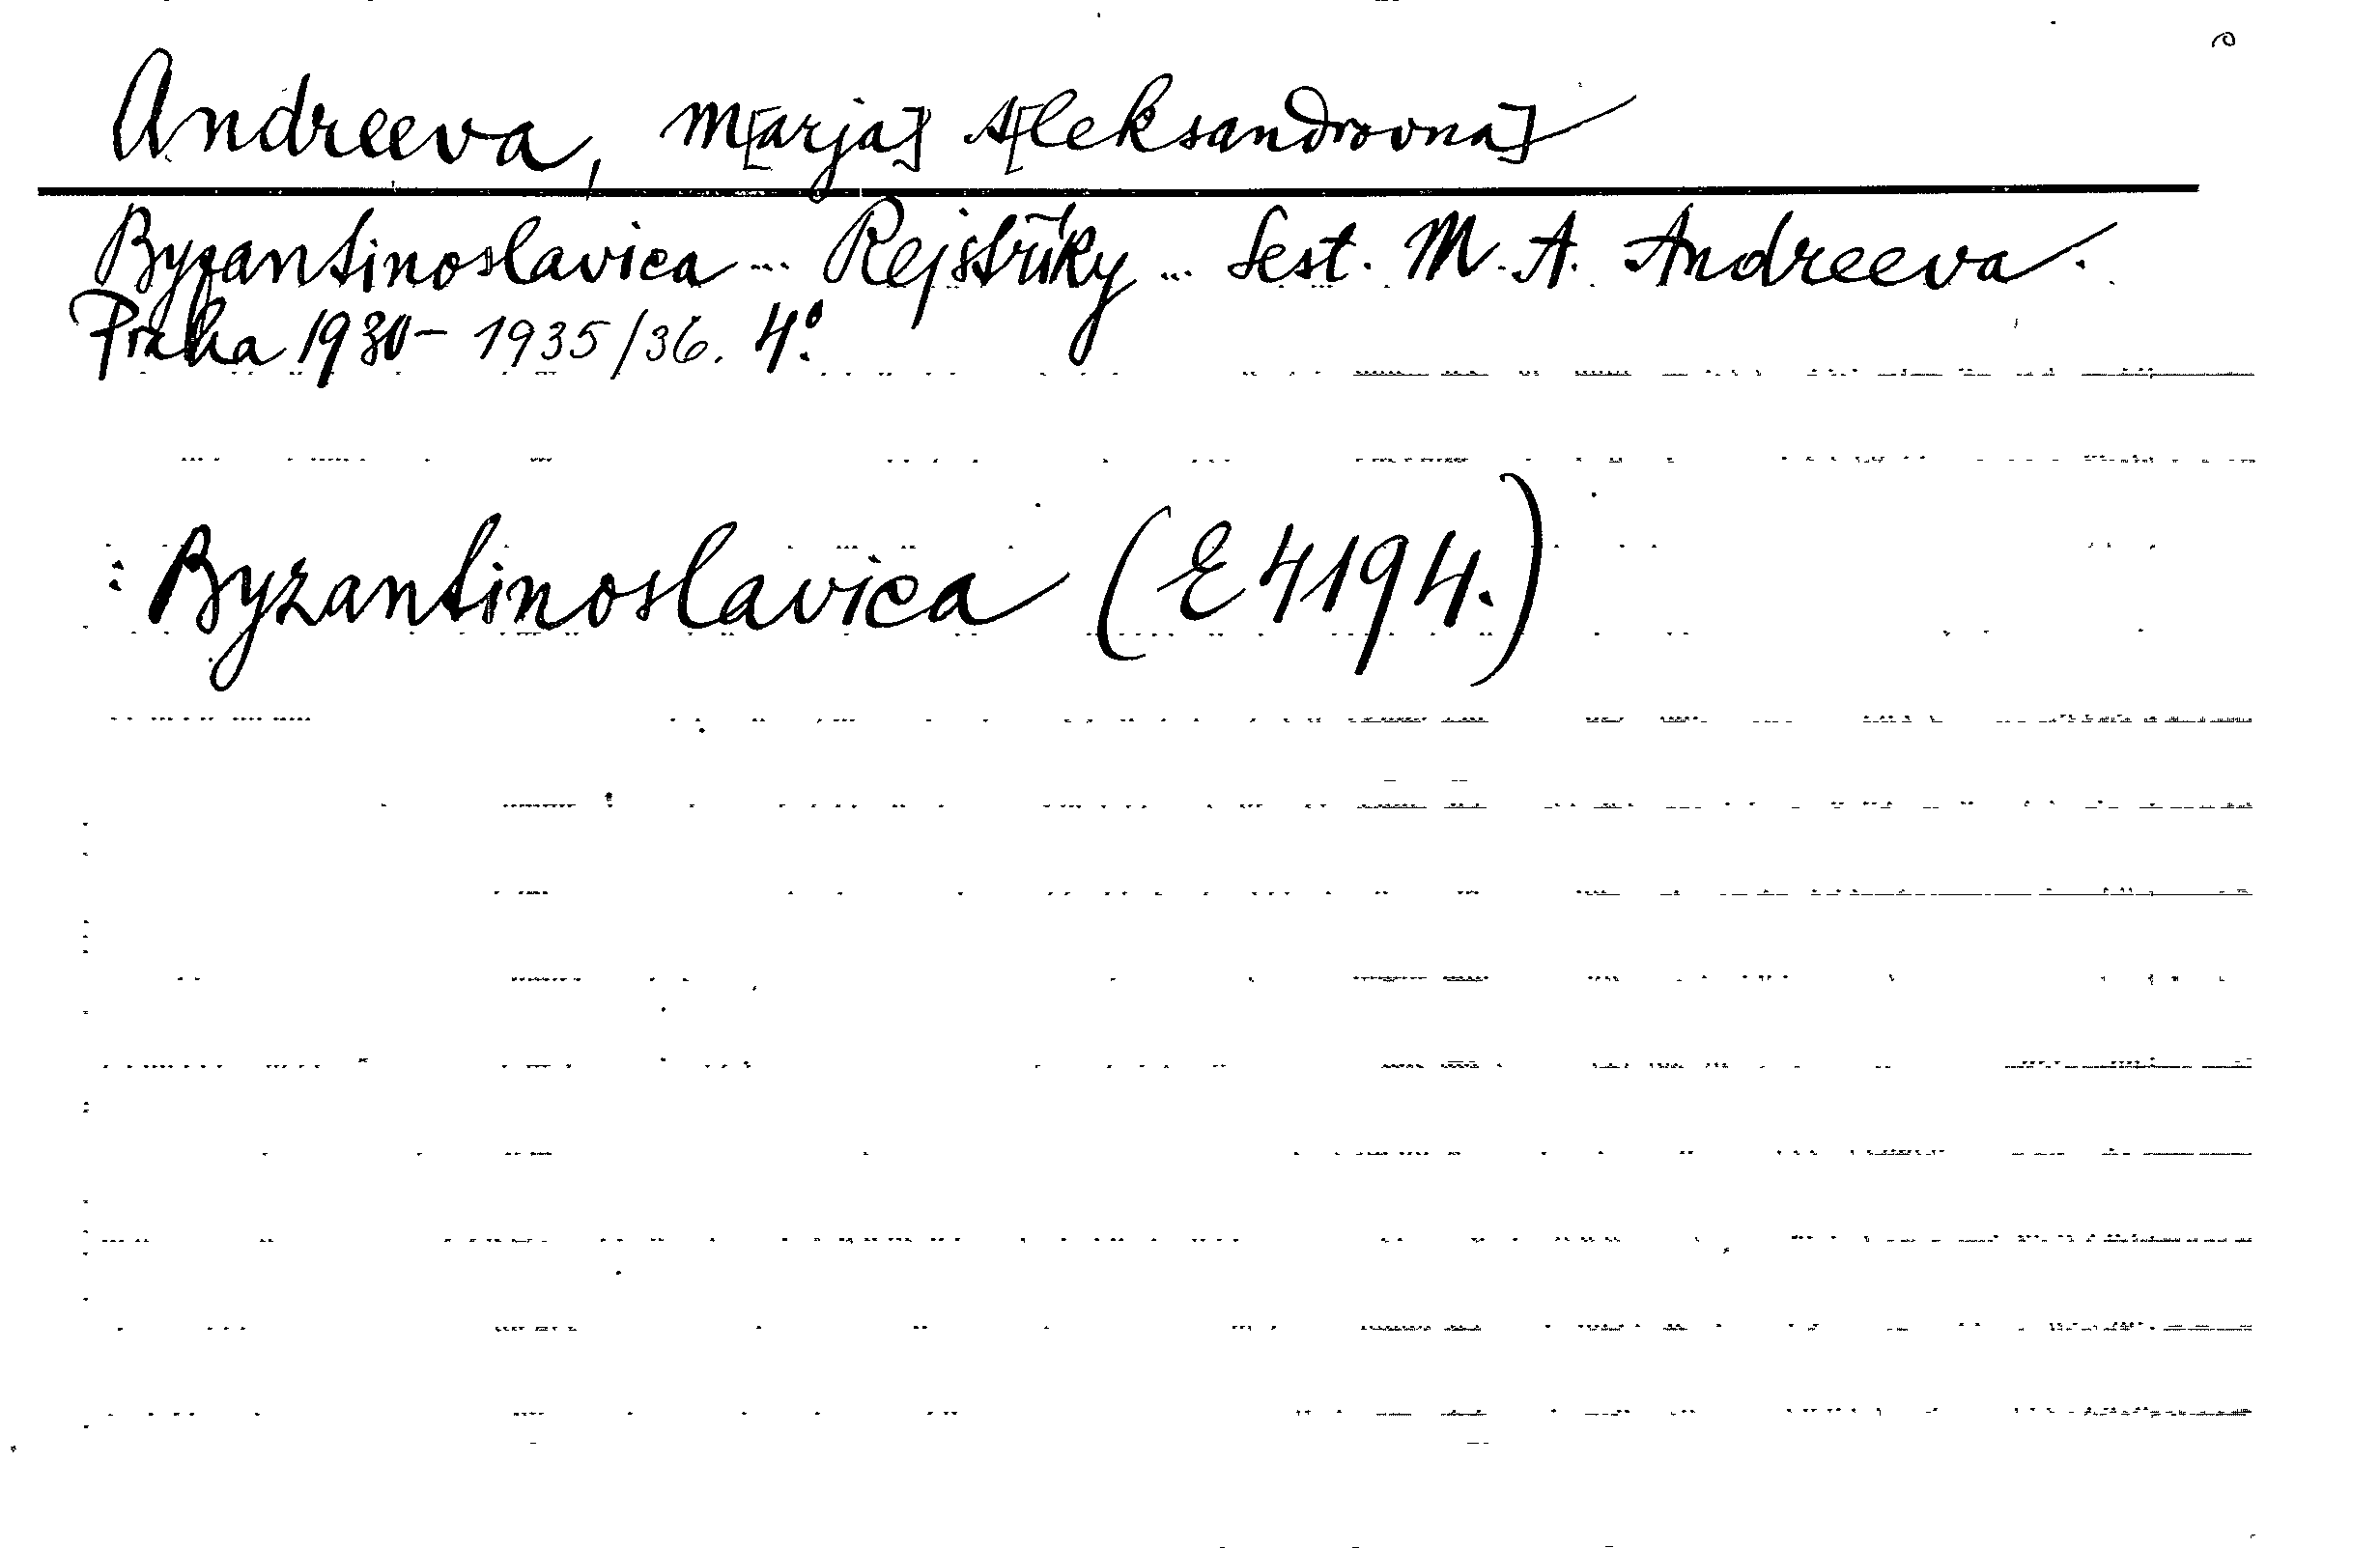 Andreeva, M[arja] A[leksandrovna]
Byzantinoslavica ... Rejstříky ... Sest. M. A. Andreeva.
Praha 1930- 1935/36. 4°.
: Byzantinoslavica (E 4194.)